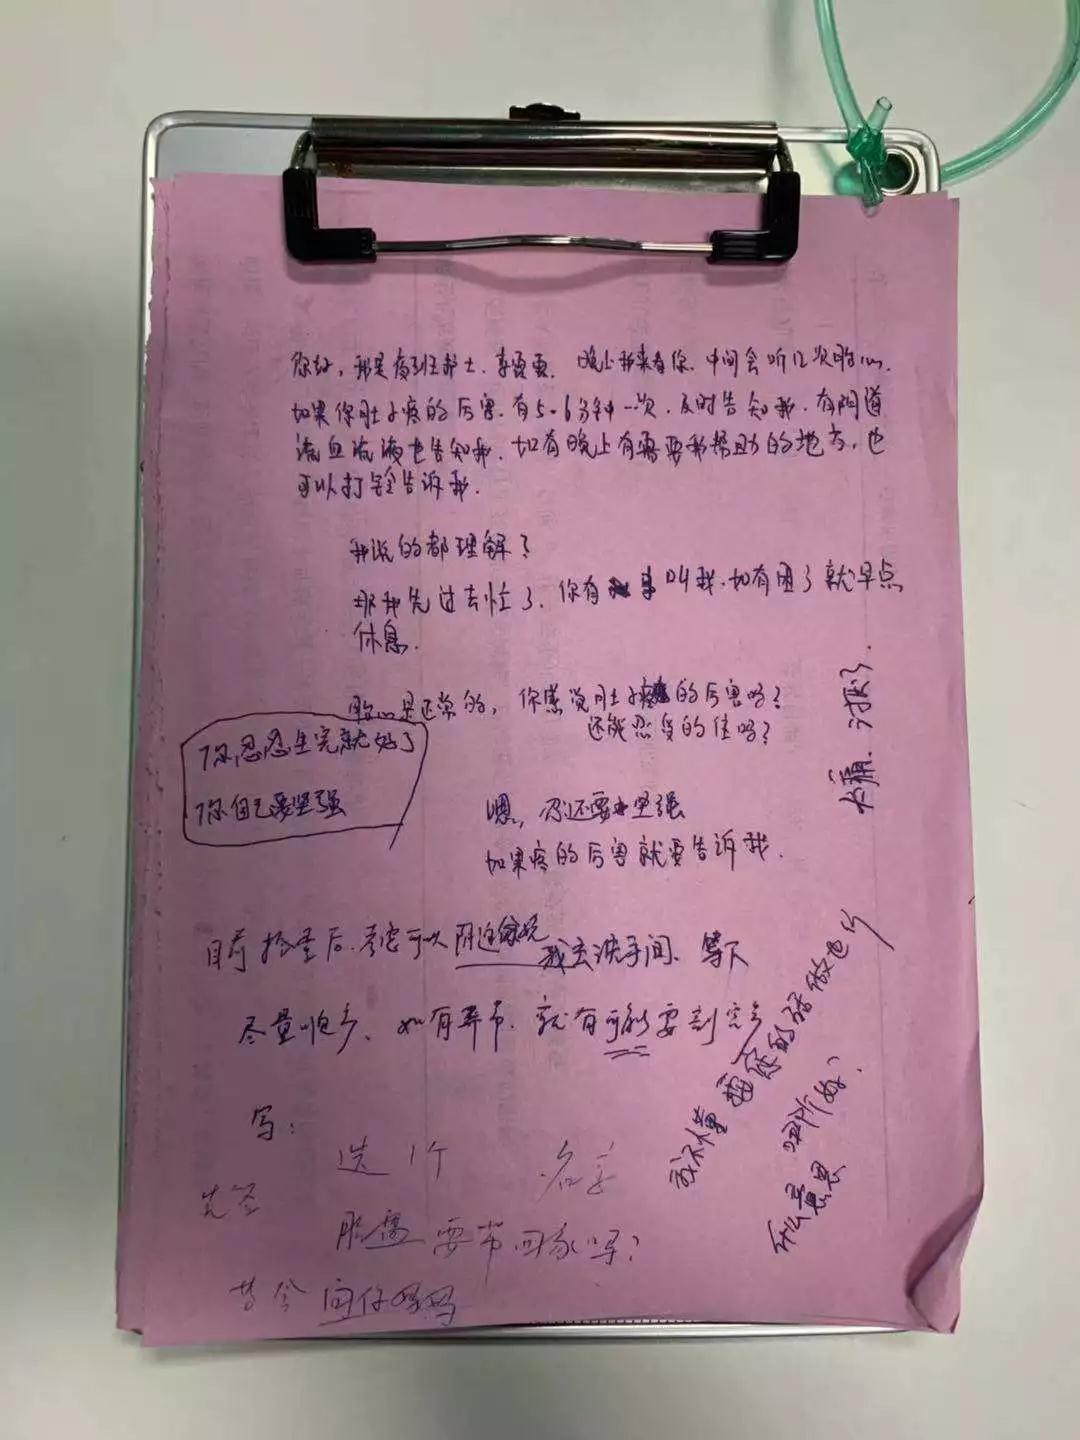 你好，我是夜班护士.李雯雯.晚上我来看你.中间会听12次胎心.
如果你肚子疼的厉害.有5-6分钟一次.及时告知我.有阴道
流血流液也告知我.如有晚上有需要我帮助的地方.也
可以打铃告诉我.
我说的都理解?
那我先过去忙了.你有事叫我.如有困了就早点
休息.
胎心是正常的，你感觉肚子疼的厉害吗?
还能忍受的住吗?
你忍忍生完就好了
你自己要坚强
嗯，你还要坚强
如果疼的厉害就要告诉我.
太痛.讨厌了.
目前 后.可以
我去洗手间.等下
尽量 如有异常.就有可能要剖宫产
我不懂 你的话做也行
什么意思
写:
选个 名字
先签
胎盘要带回家吗?
问你妈妈